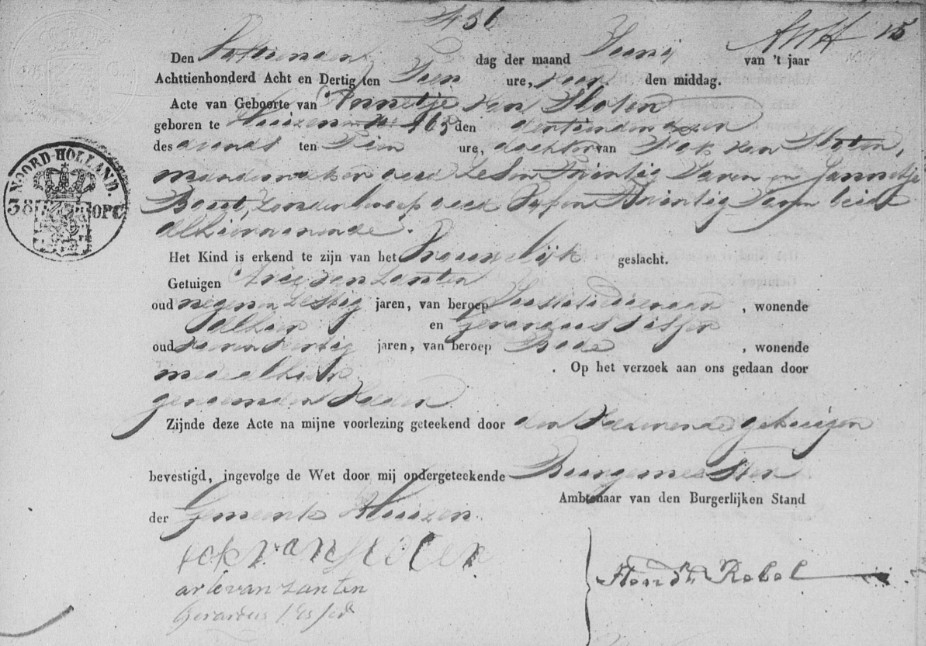 N 31
15
Den dag der maand Junij van 't jaar
Achttienhonderd Acht en Dertig ten Tien ure, voor den middag.
Acte van Geboorte van Annetje van Sloten
geboren te Huizen den dertienden dezer
des avonds ten Tien ure, dochter van Fok van Sloten,
mandemaker oud Zes en Twintig Jaren en Jannetje
Bout, zonder beroep oud Twintig Jaren beide
alhier wonende.
NOORD-HOLLAND
38 OPC
Het Kind is erkend te zijn van het Vrouwelijk geslacht.
Getuigen Arie van Zanten
oud negen en Zestig jaren, van beroep , wonende
alhier en Gerardus Visser
oud Veertig jaren, van beroep Bode , wonende
mede alhier . Op het verzoek aan ons gedaan door
genoemden Vader
Zijnde deze Acte na mijne voorlezing geteekend door den en getuigen
bevestigd, ingevolge de Wet door mij ondergeteekende Burgemeester
Ambtenaar van den Burgerlijken Stand
der Gemeente Huizen
Fok van Sloten
arie van zanten
Gerardus Visser
Hend. Rebel